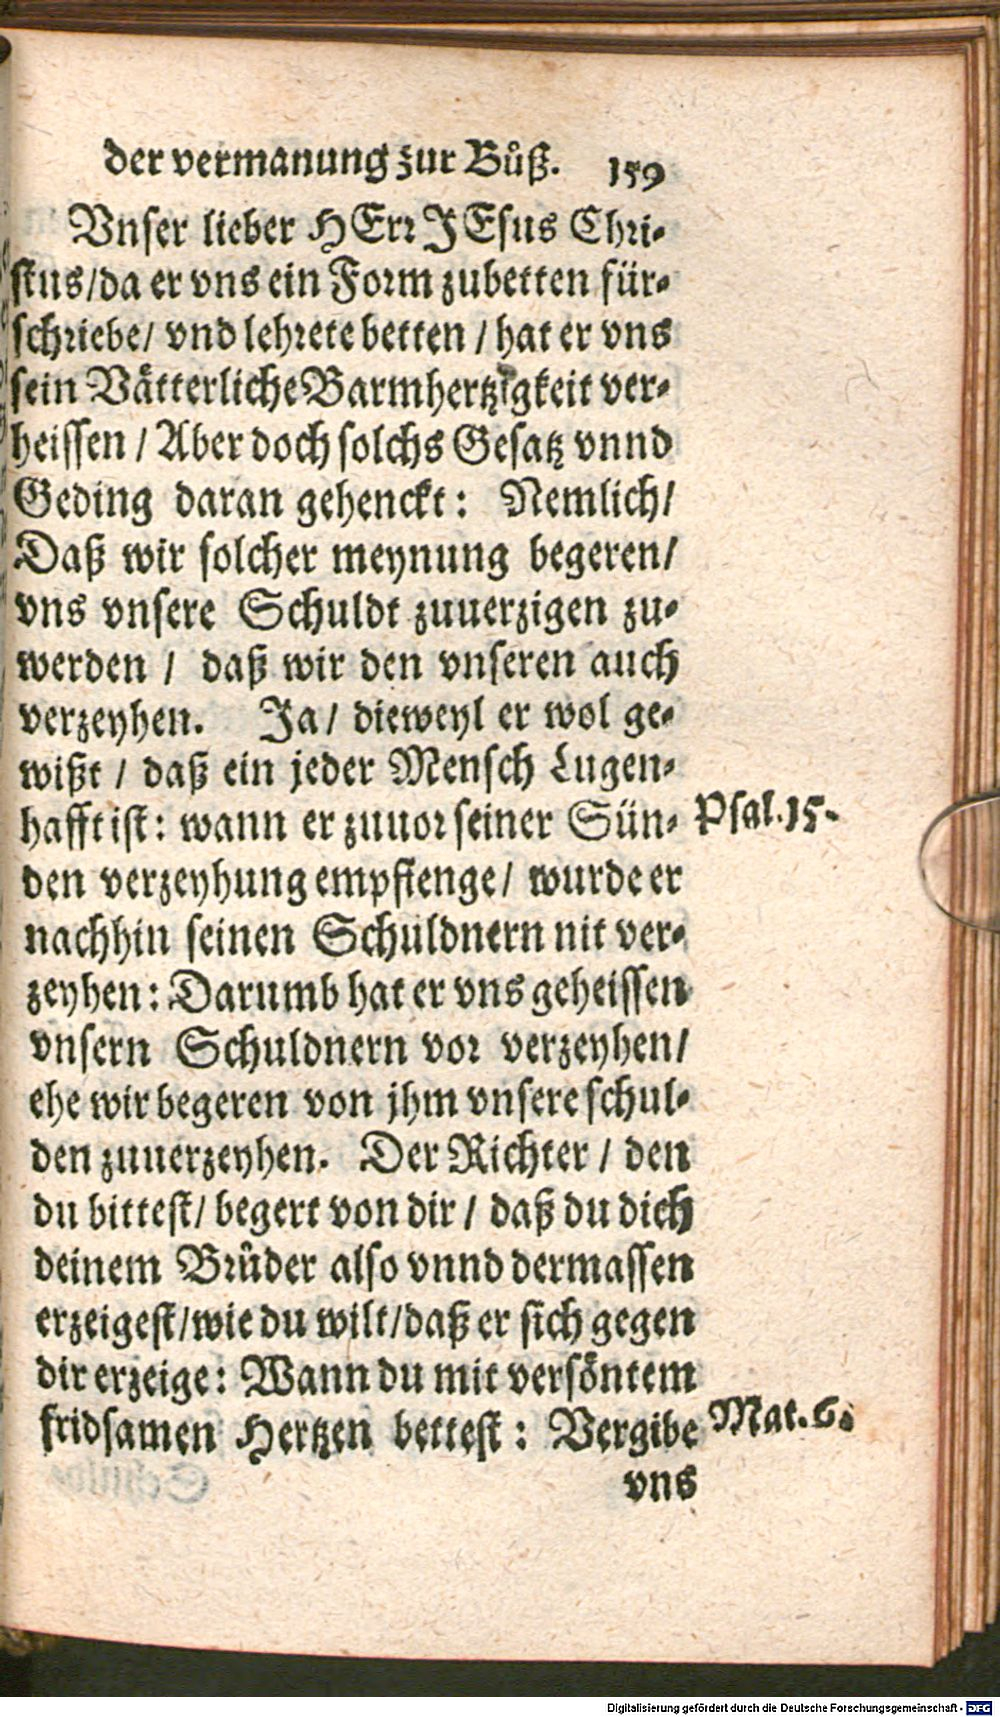 der vermanung zur Bůß. 159
Vnser lieber HErr JEsus Chri-
stus/da er vns ein Form zubetten für-
schriebe/ vnd lehrete betten / hat er vns
sein Vätterliche Barmhertzigkeit ver-
heissen / Aber doch solchs Gesatz vnnd
Geding daran gehenckt: Nemlich/
Daß wir solcher meynung begeren/
vns vnsere Schuldt zuuerzigen zu-
werden / daß wir den vnseren auch
verzeyhen. Ja/ dieweyl er wol ge-
wißt / daß ein jeder Mensch Lugen-
hafft ist: wann er zuuor seiner Sün- Psal.15.
den verzeyhung empfienge/ wurde er
nachhin seinen Schuldnern nit ver-
zeyhen: Darumb hat er vns geheissen
vnsern Schuldnern vor verzeyhen/
ehe wir begeren von jhm vnsere schul-
den zuuerzeyhen. Der Richter / den
du bittest/ begert von dir / daß du dich
deinem Brůder also vnnd dermassen
erzeigest/wie du wilt/daß er sich gegen
dir erzeige: Wann du mit versöntem
fridsamen Hertzen bettest : Vergibe Mat.6.
vns
Digitalisierung gefördert durch die Deutsche Forschungsgemeinschaft - DFG